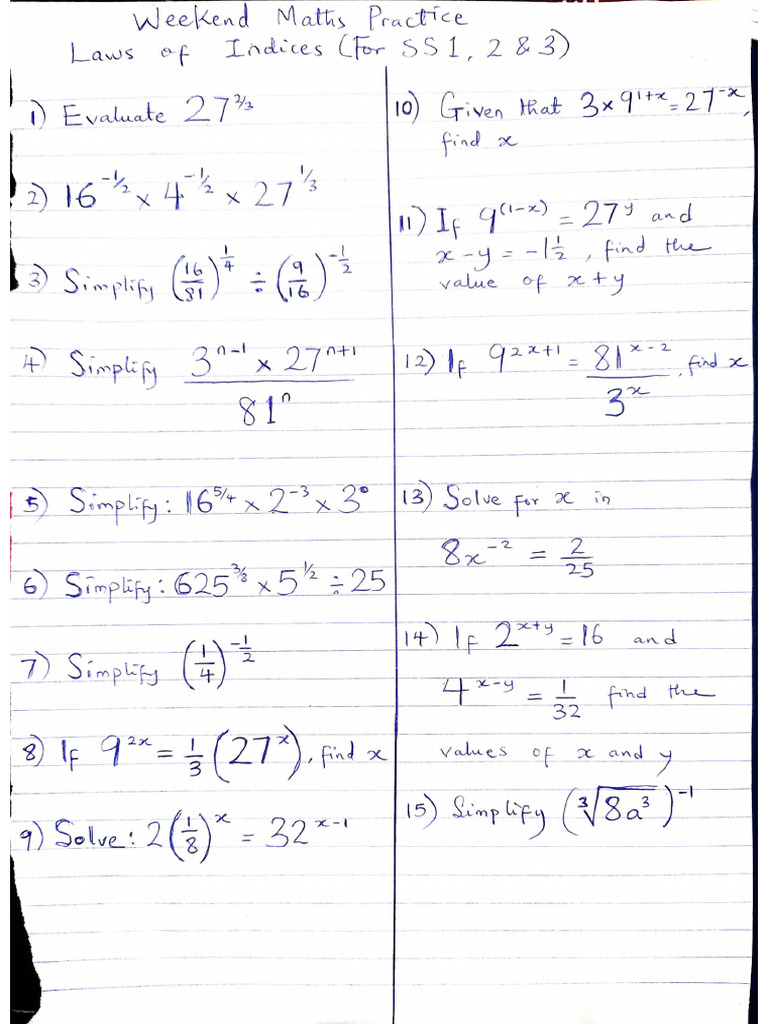 Weekend Maths Practice
Laws of Indices (For SS1, 2 & 3)
1) Evaluate 27^(2/3)
2) 16^(-1/2) × 4^(-1/2) × 27^(1/3)
3) Simplify (16/81)^(1/4) ÷ (9/16)^(-1/2)
4) Simplify (3^(n-1) × 27^(n+1))/81^n
5) Simplify: 16^(5/4) × 2^(-3) × 3^0
6) Simplify: 625^(3/8) × 5^(1/2) ÷ 25
7) Simplify (1/4)^(-1/2)
8) If 9^(2x) = 1/3 (27^x), find x
9) Solve: 2(1/8)^x = 32^(x-1)
10) Given that 3 × 9^(1+x) = 27^(-x),
find x
11) If 9^((1-x)) = 27^y and
x - y = -1 1/2, find the
value of x + y
12) If 9^(2x+1) = 81^(x-2)/3^x, find x
13) Solve for x in
8x^(-2) = 2/25
14) If 2^(x+y) = 16 and
4^(x-y) = 1/32 find the
values of x and y
15) Simplify (∛(8a^3))^(-1)